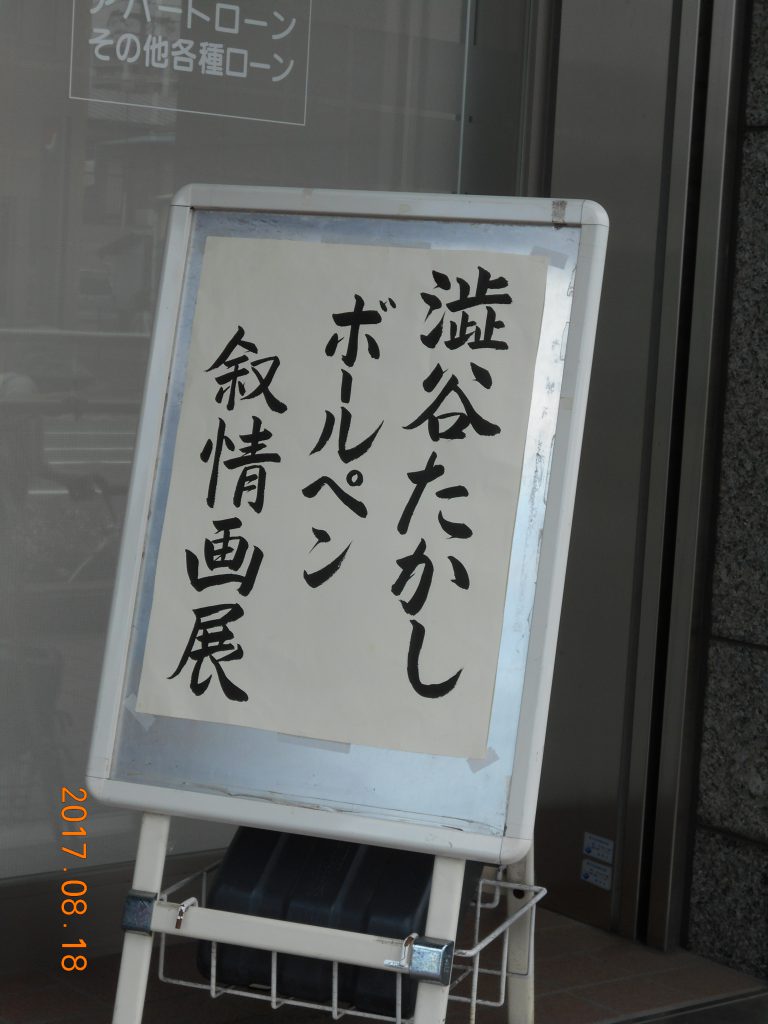 アパートローン
その他各種ローン
澁谷たかし
ボールペン
叙情画展
2017.08.18